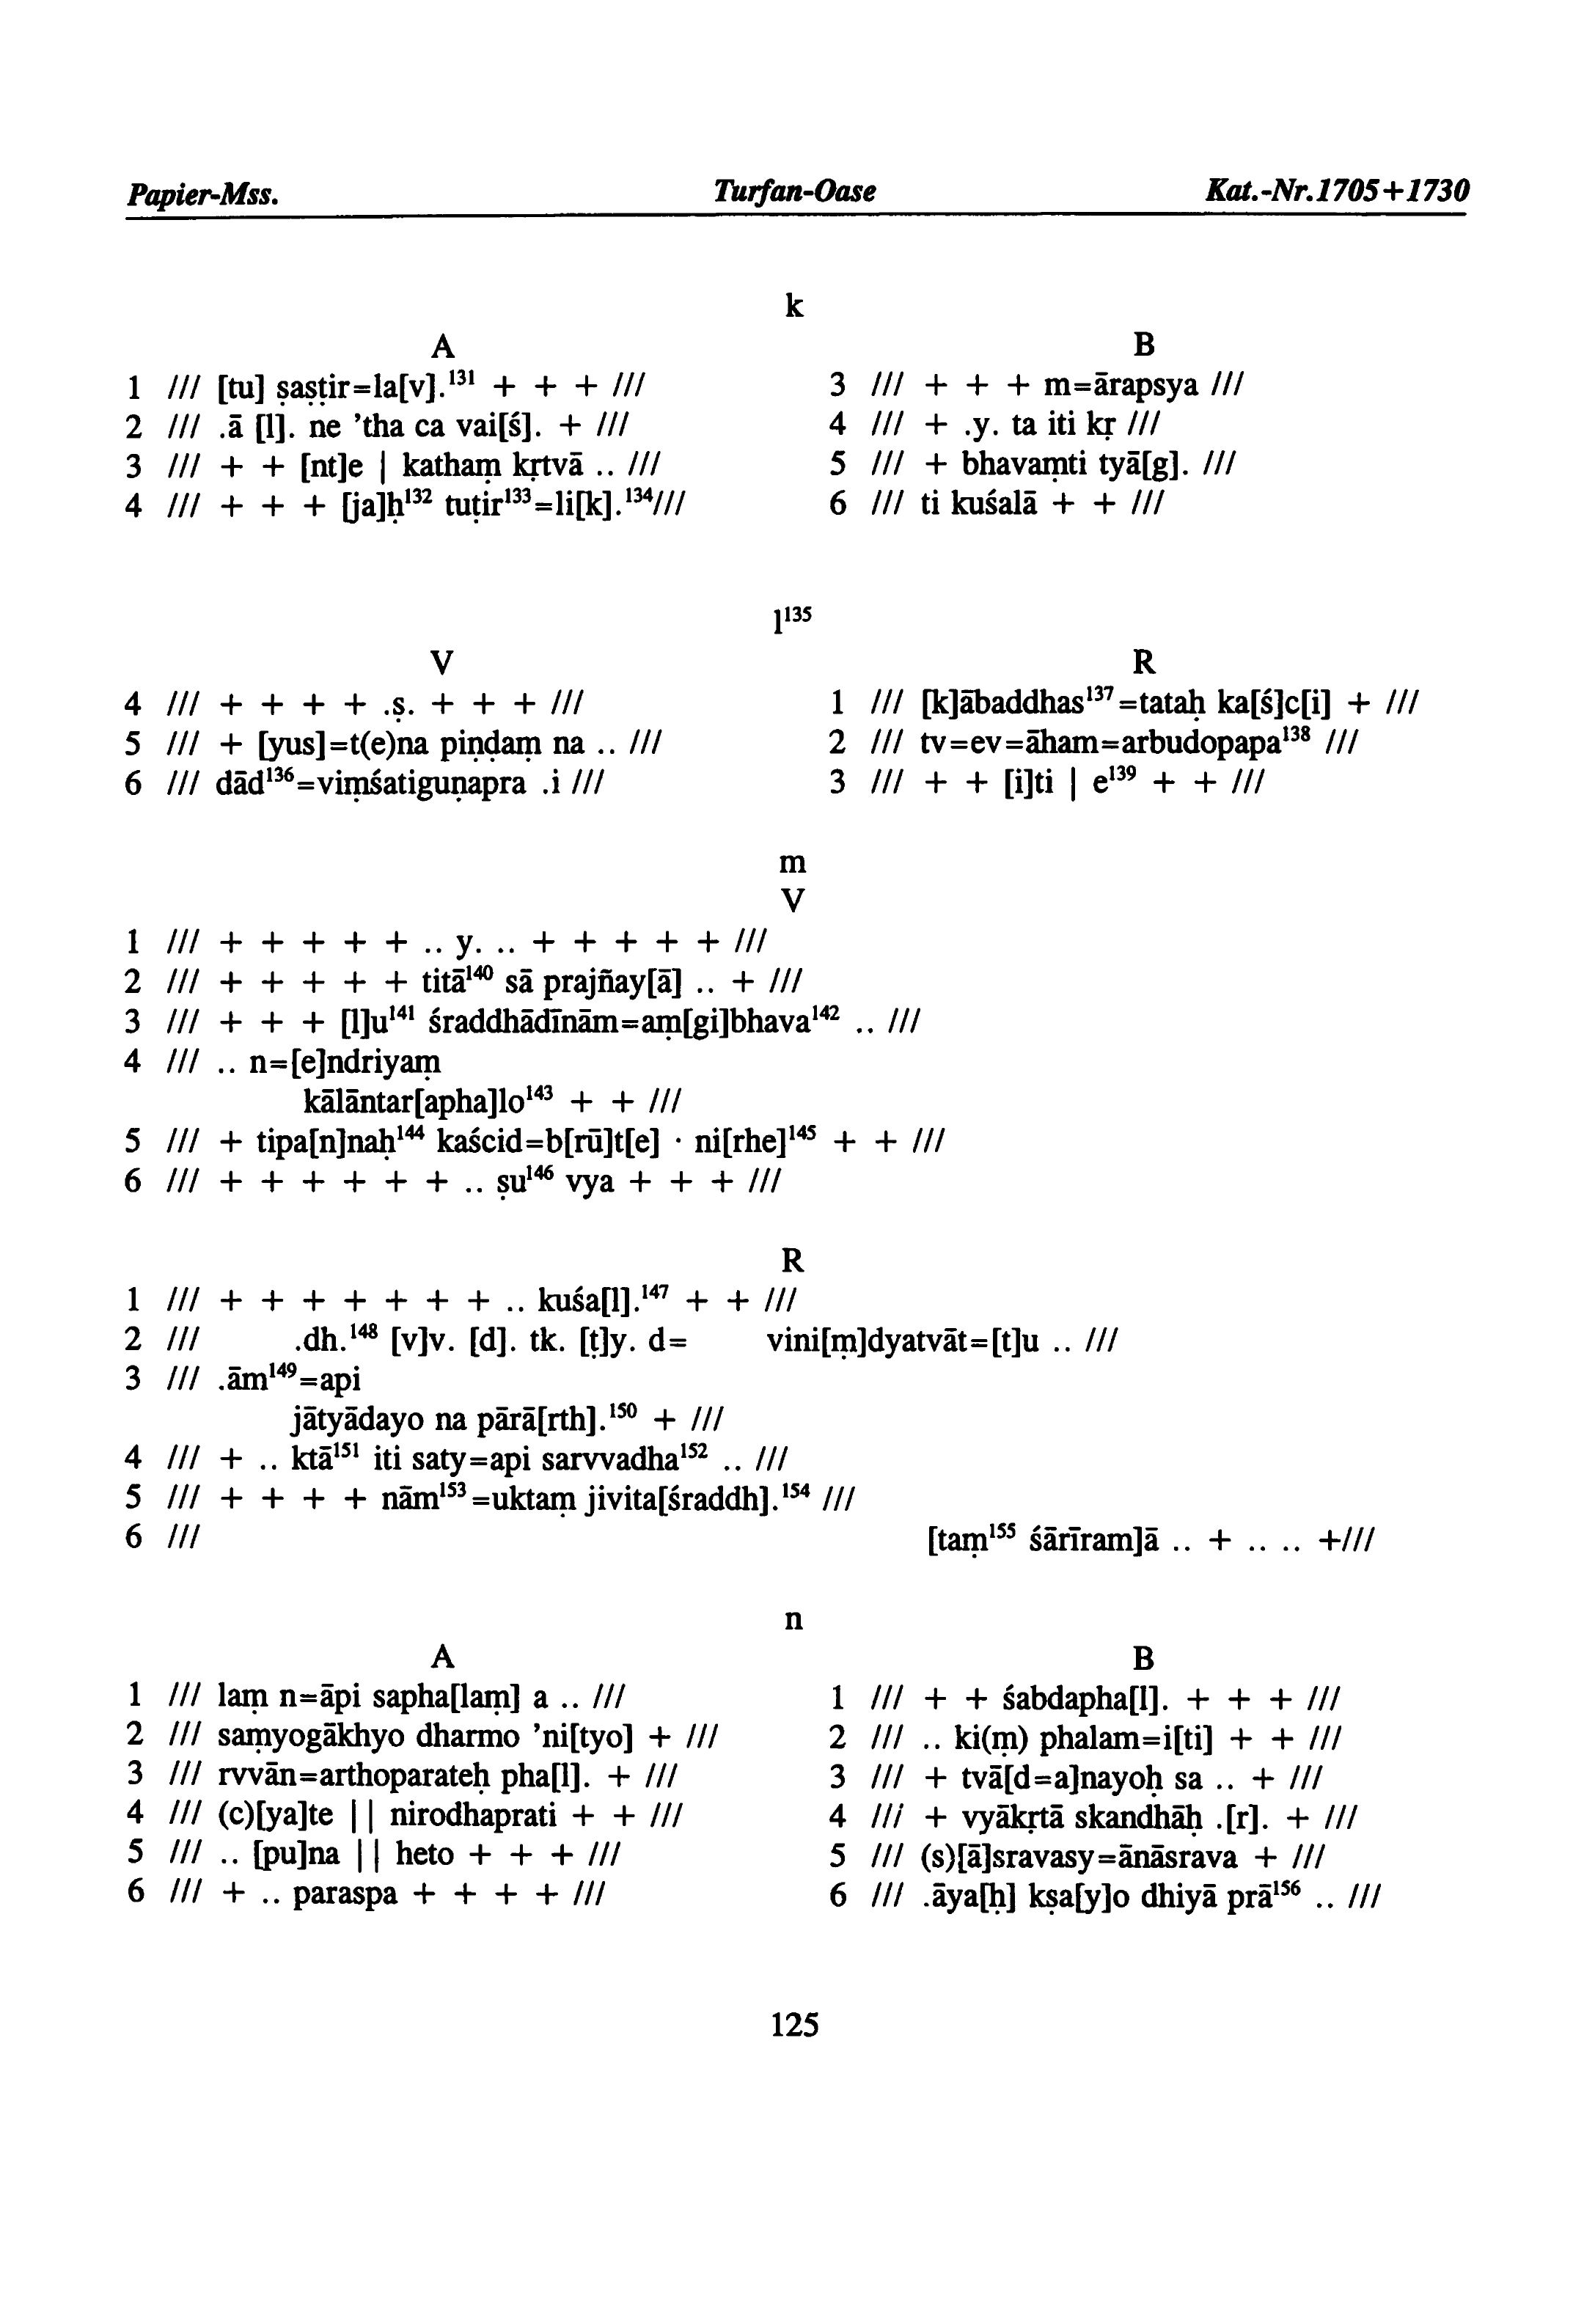 Papier-Mss. Turfan-Oase Kat.-Nr.1705+1730
k
A
1 /// [tu] ṣaṣṭir=la[v].¹³¹ + + + ///
2 /// .ā [l]. ne ’tha ca vai[ś]. + ///
3 /// + + [nt]e | kathaṃ kṛtvā .. ///
4 /// + + + [ja]ḥ¹³² tuṭir¹³³=li[k].¹³⁴///
B
3 /// + + + m=ārapsya ///
4 /// + .y. ta iti kṛ ///
5 /// + bhavaṃti tyā[g]. ///
6 /// ti kuśalā + + ///
l¹³⁵
V
4 /// + + + + .ṣ. + + + ///
5 /// + [yus]=t(e)na piṇḍaṃ na .. ///
6 /// dād¹³⁶=viṃśatiguṇapra .i ///
R
1 /// [k]ābaddhas¹³⁷=tataḥ ka[ś]c[i] + ///
2 /// tv=ev=āham=arbudopapa¹³⁸ ///
3 /// + + [i]ti | e¹³⁹ + + ///
m
V
1 /// + + + + + .. y. .. + + + + + ///
2 /// + + + + + titā¹⁴⁰ sā prajñay[ā] .. + ///
3 /// + + + [l]u¹⁴¹ śraddhādīnām=aṃ[gi]bhava¹⁴² .. ///
4 /// .. n=[e]ndriyaṃ
kālāntar[apha]lo¹⁴³ + + ///
5 /// + tipa[n]naḥ¹⁴⁴ kaścid=b[rū]t[e] · ni[rhe]¹⁴⁵ + + ///
6 /// + + + + + + .. ṣu¹⁴⁶ vya + + + ///
R
1 /// + + + + + + + .. kuśa[l].¹⁴⁷ + + ///
2 /// .dh.¹⁴⁸ [v]v. [d]. tk. [ṭ]y. d= vini[ṃ]dyatvāt=[t]u .. ///
3 /// .ām¹⁴⁹=api
jātyādayo na pārā[rth].¹⁵⁰ + ///
4 /// + .. ktā¹⁵¹ iti saty=api sarvvadha¹⁵² .. ///
5 /// + + + + nām¹⁵³=uktaṃ jivita[śraddh].¹⁵⁴ ///
6 /// [taṃ¹⁵⁵ śārīram]ā .. + .. .. +///
n
A
1 /// laṃ n=āpi sapha[laṃ] a .. ///
2 /// saṃyogākhyo dharmo ’ni[tyo] + ///
3 /// rvvān=arthoparateḥ pha[l]. + ///
4 /// (c)[ya]te || nirodhaprati + + ///
5 /// .. [pu]na || heto + + + ///
6 /// + .. paraspa + + + + ///
B
1 /// + + śabdapha[l]. + + + ///
2 /// .. ki(ṃ) phalam=i[ti] + + ///
3 /// + tvā[d=a]nayoḥ sa .. + ///
4 /// + vyākṛtā skandhāḥ .[r]. + ///
5 /// (s)[ā]sravasy=ānāsrava + ///
6 /// .āya[ḥ] kṣa[y]o dhiyā prā¹⁵⁶ .. ///
125